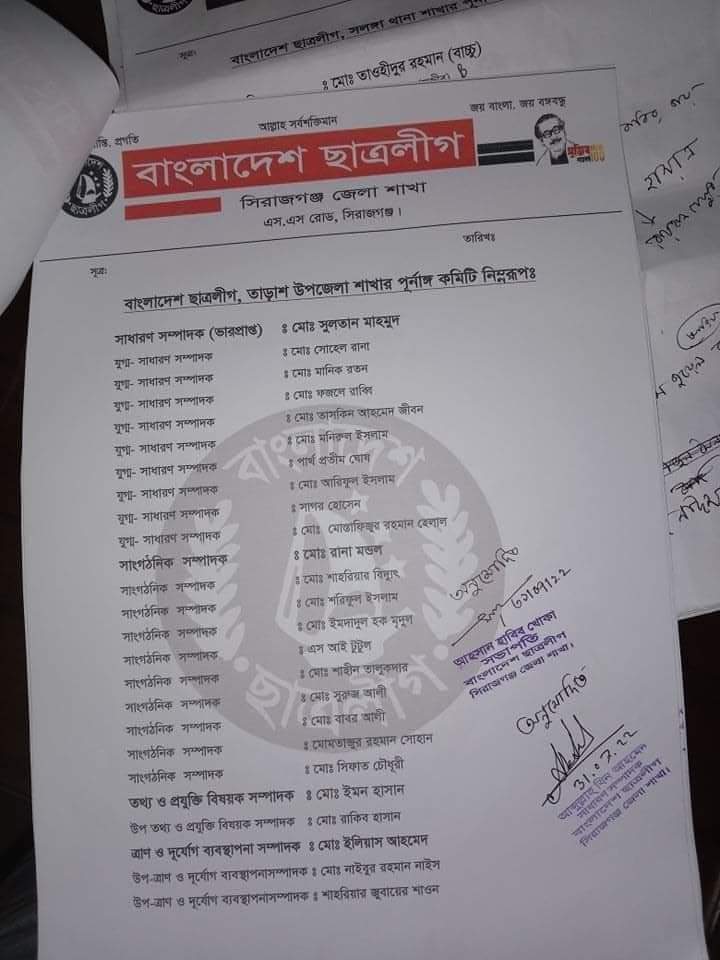 সূত্র:
বাংলাদেশ ছাত্রলীগ, সলঙ্গা থানা শাখার পূর্নাঙ্গ
ঃ মোঃ তাওহীদুর রহমান (বাচ্চু)
প্রগতি
আল্লাহ সর্বশক্তিমান
জয় বাংলা, জয় বঙ্গবন্ধু
বাংলাদেশ ছাত্রলীগ
সিরাজগঞ্জ জেলা শাখা
এস.এস রোড, সিরাজগঞ্জ।
ছাত্রলীগ
মুজিব
100
সূত্র:
তারিখঃ
বাংলাদেশ ছাত্রলীগ, তাড়াশ উপজেলা শাখার পূর্নাঙ্গ কমিটি নিম্নরূপঃ
সাধারণ সম্পাদক (ভারপ্রাপ্ত) ঃ মোঃ সুলতান মাহমুদ
যুগ্ম- সাধারণ সম্পাদক ঃ মোঃ সোহেল রানা
যুগ্ম- সাধারণ সম্পাদক ঃ মোঃ মানিক রতন
যুগ্ম- সাধারণ সম্পাদক ঃ মোঃ ফজলে রাব্বি
যুগ্ম- সাধারণ সম্পাদক ঃ মোঃ তাসকিন আহমেদ জীবন
যুগ্ম- সাধারণ সম্পাদক ঃ মোঃ মনিরুল ইসলাম
যুগ্ম- সাধারণ সম্পাদক ঃ পার্থ প্রতীম ঘোষ
যুগ্ম- সাধারণ সম্পাদক ঃ মোঃ আরিফুল ইসলাম
যুগ্ম- সাধারণ সম্পাদক ঃ সাগর হোসেন
যুগ্ম- সাধারণ সম্পাদক ঃ মোঃ মোস্তাফিজুর রহমান হেলাল
সাংগঠনিক সম্পাদক ঃ মোঃ রানা মন্ডল
সাংগঠনিক সম্পাদক ঃ মোঃ শাহরিয়ার বিদ্যুৎ
সাংগঠনিক সম্পাদক ঃ মোঃ শরিফুল ইসলাম
সাংগঠনিক সম্পাদক ঃ মোঃ ইমদাদুল হক মৃদুল
সাংগঠনিক সম্পাদক ঃ এস আই টুটুল
সাংগঠনিক সম্পাদক ঃ মোঃ শাহীন তালুকদার
সাংগঠনিক সম্পাদক ঃ মোঃ সুরুজ আলী
সাংগঠনিক সম্পাদক ঃ মোঃ বাবর আলী
সাংগঠনিক সম্পাদক ঃ মোমতাজুর রহমান সোহান
সাংগঠনিক সম্পাদক ঃ মোঃ সিফাত চৌধুরী
তথ্য ও প্রযুক্তি বিষয়ক সম্পাদক ঃ মোঃ ইমন হাসান
উপ তথ্য ও প্রযুক্তি বিষয়ক সম্পাদক ঃ মোঃ রাকিব হাসান
ত্রাণ ও দূর্যোগ ব্যবস্থাপনা সম্পাদক ঃ মোঃ ইলিয়াস আহমেদ
উপ-ত্রাণ ও দূর্যোগ ব্যবস্থাপনাসম্পাদক ঃ মোঃ নাইবুর রহমান নাইস
উপ-ত্রাণ ও দূর্যোগ ব্যবস্থাপনাসম্পাদক ঃ শাহরিয়ার জুবায়ের শাওন
বাংলাদেশ
ছাত্রলীগ
অনুমোদিত
আহসান হাবিব খোকা
সভাপতি
বাংলাদেশ ছাত্রলীগ
সিরাজগঞ্জ জেলা শাখা।
অনুমোদিত
31.07.22
আব্দুল্লাহ বিন আহমেদ
সাধারণ সম্পাদক
বাংলাদেশ ছাত্রলীগ
সিরাজগঞ্জ জেলা শাখা।